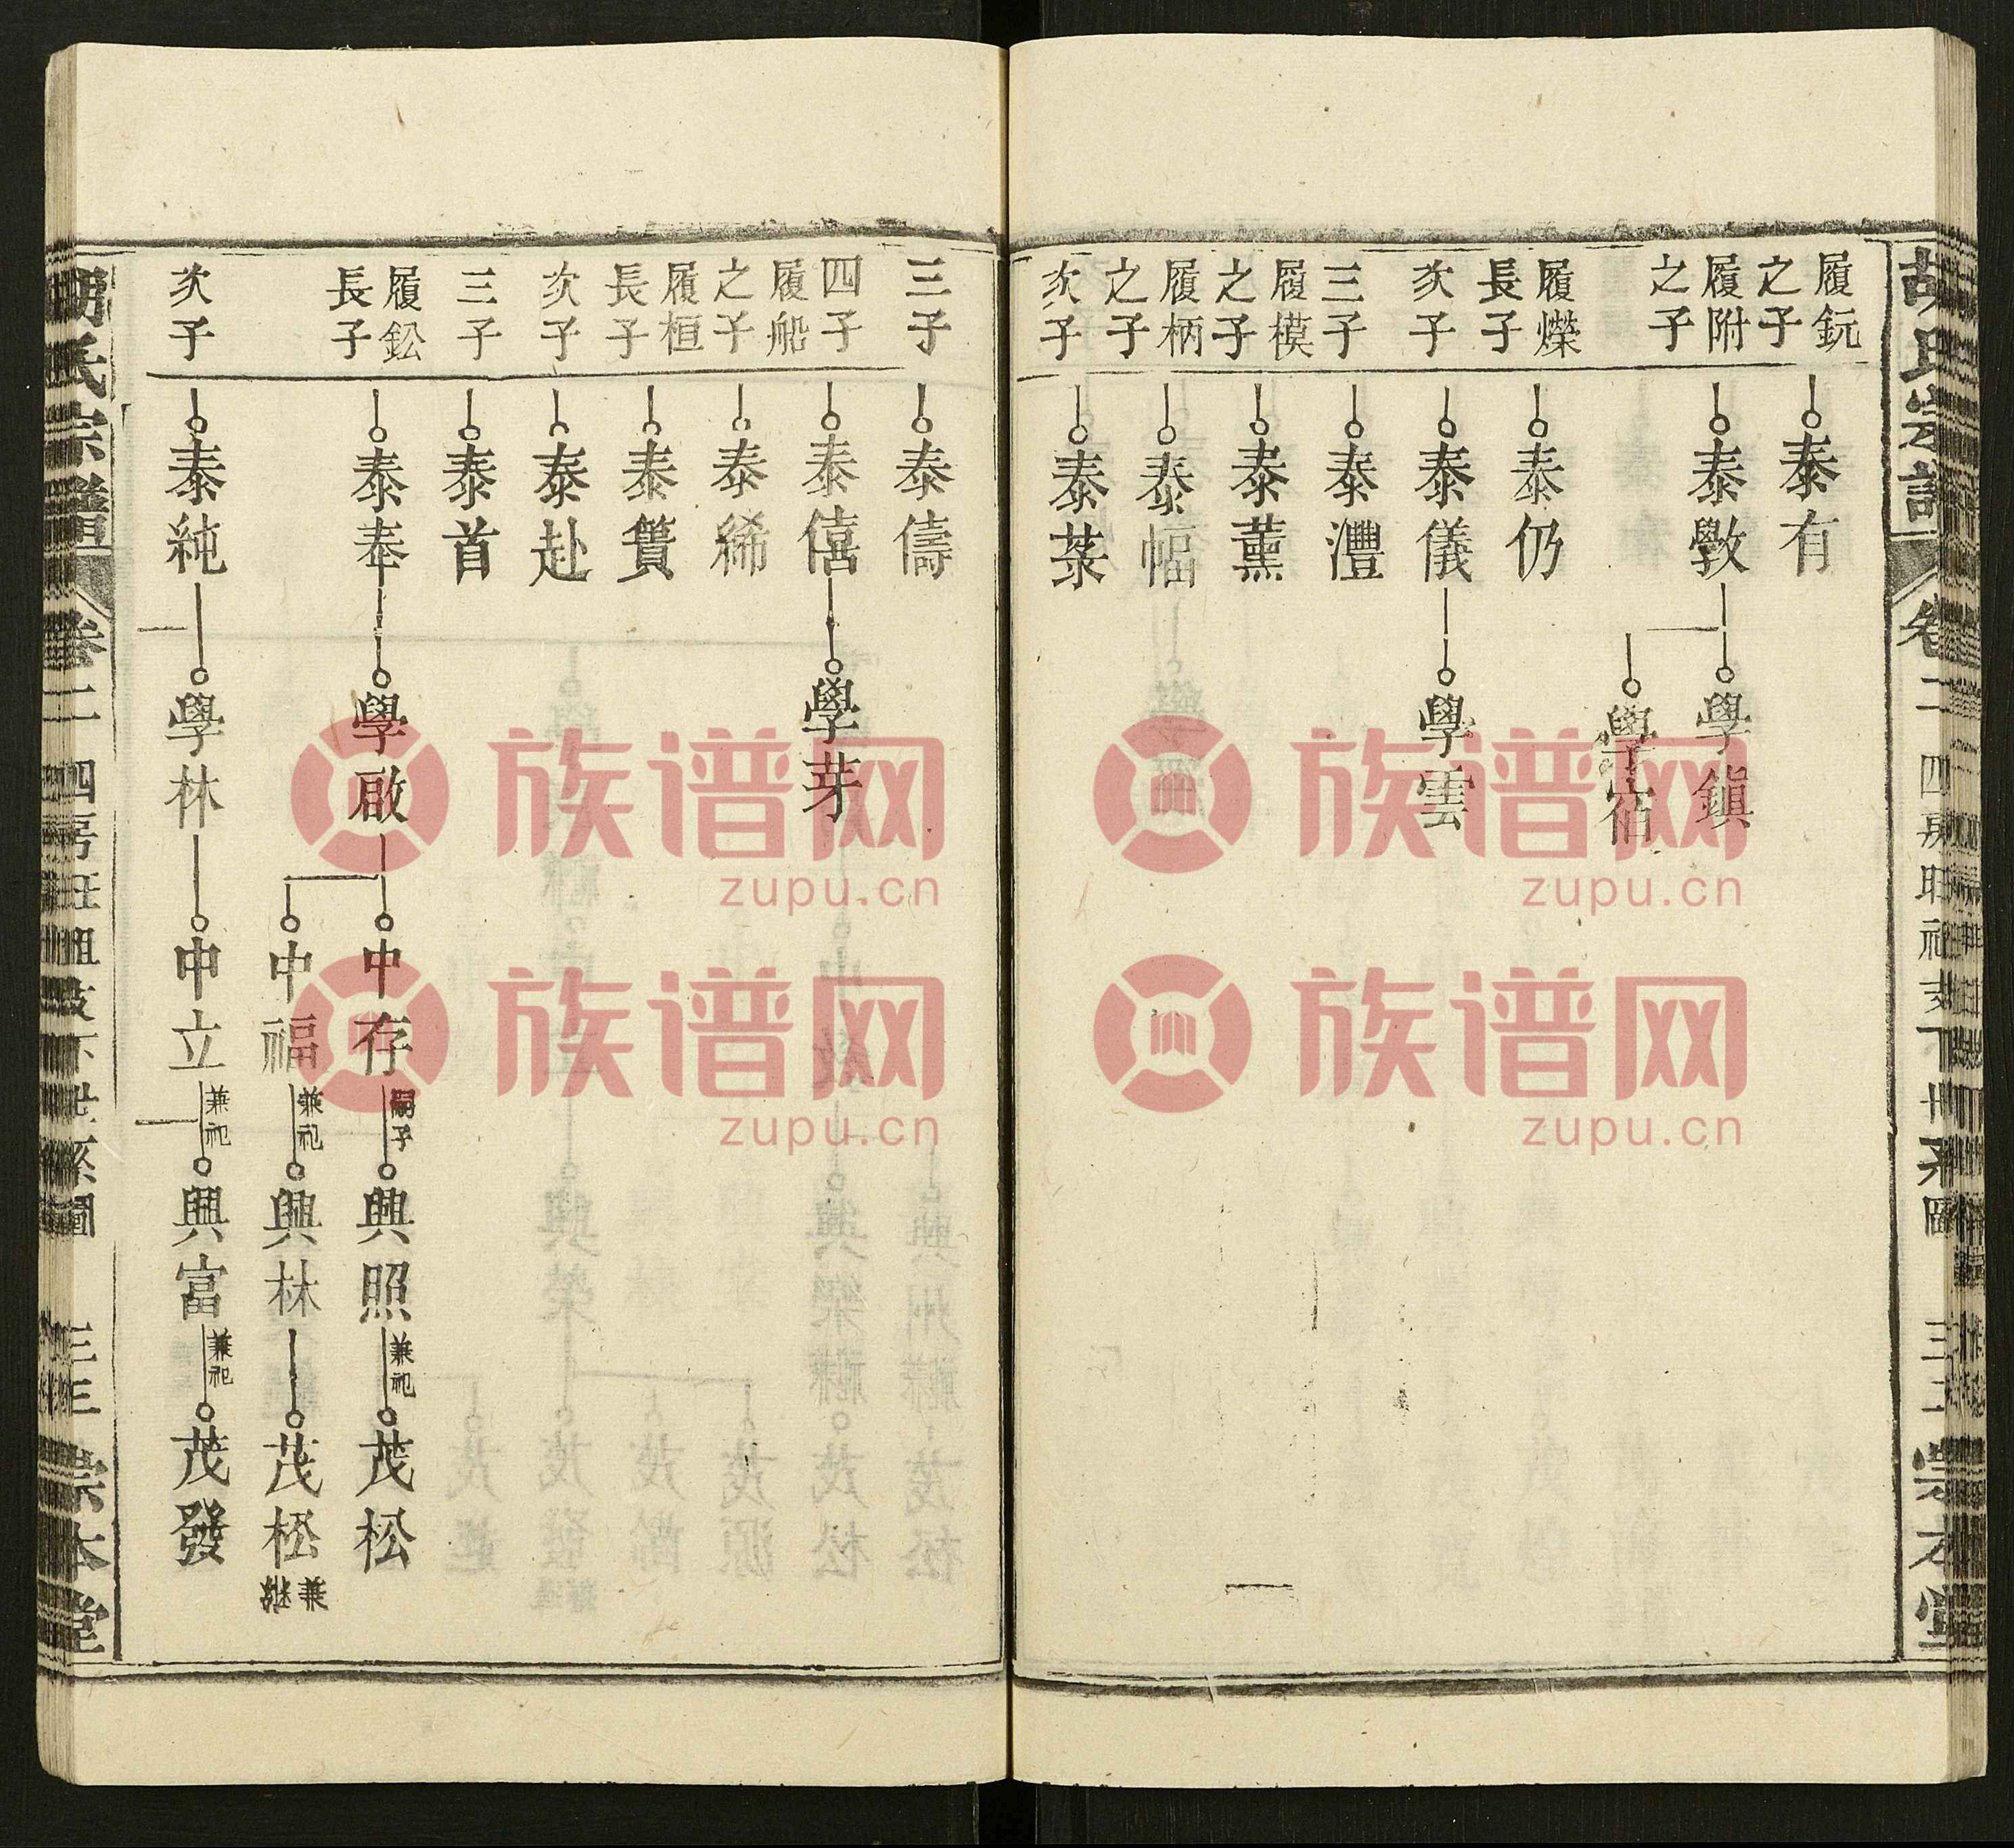 胡氏宗譜
卷二
四房旺祖支下世系圖
崇本堂
履鈨之子
泰有
履附之子
泰斆
學鎮
學宿
履爃長子
泰仍
次子
泰儀
學雲
三子
泰灃
履模之子
泰薰
履柄之子
泰幅
次子
泰菉
三子
泰儔
四子
泰僖
學芽
履船之子
泰絺
履桓長子
泰簣
次子
泰赴
三子
泰首
履鈆長子
泰奉
學啟
中存
嗣子
興照
兼祀
茂松
中福
兼祀
興林
茂松
兼繼
次子
泰純
學林
中立
兼祀
興富
兼祀
茂發
胡氏宗譜
卷二
四房旺祖支下世系圖
三三
崇本堂
族谱网
zupu.cn
族谱网
zupu.cn
族谱网
zupu.cn
族谱网
zupu.cn